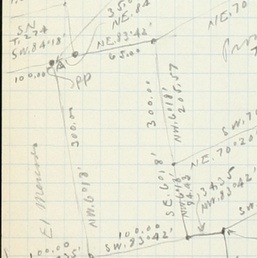 35.00
NE.84
NE.70
SN
T.274
SW.84°18'
NE.83°42'
65.00
100.00
PP
300.00
NW.6°18'
300.00
NW.6°18'
205.57
SW.7
NE.70°20'
SE.6°18'
NW.6°18'
94.43
34.35
NW.83°42'
El Moreno
100.00
SW.83°42'
100.00
SW.